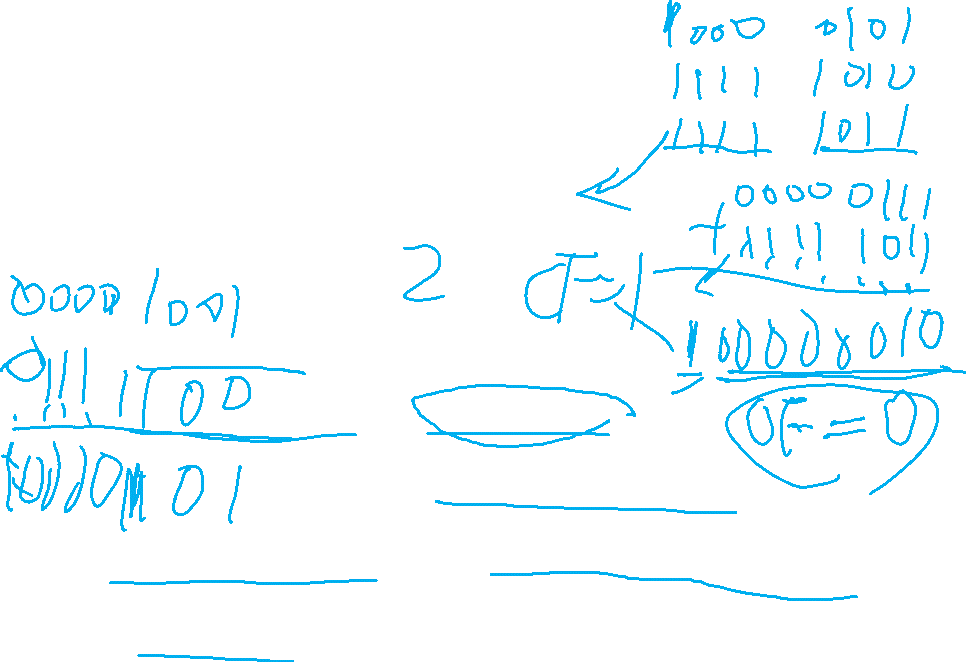 1000 0101
1111 1010
1111 1011
0000 0111
+ 1111 1011
2
CF=1
1 0000 0010
OF=0
0000 1001
1111 1100